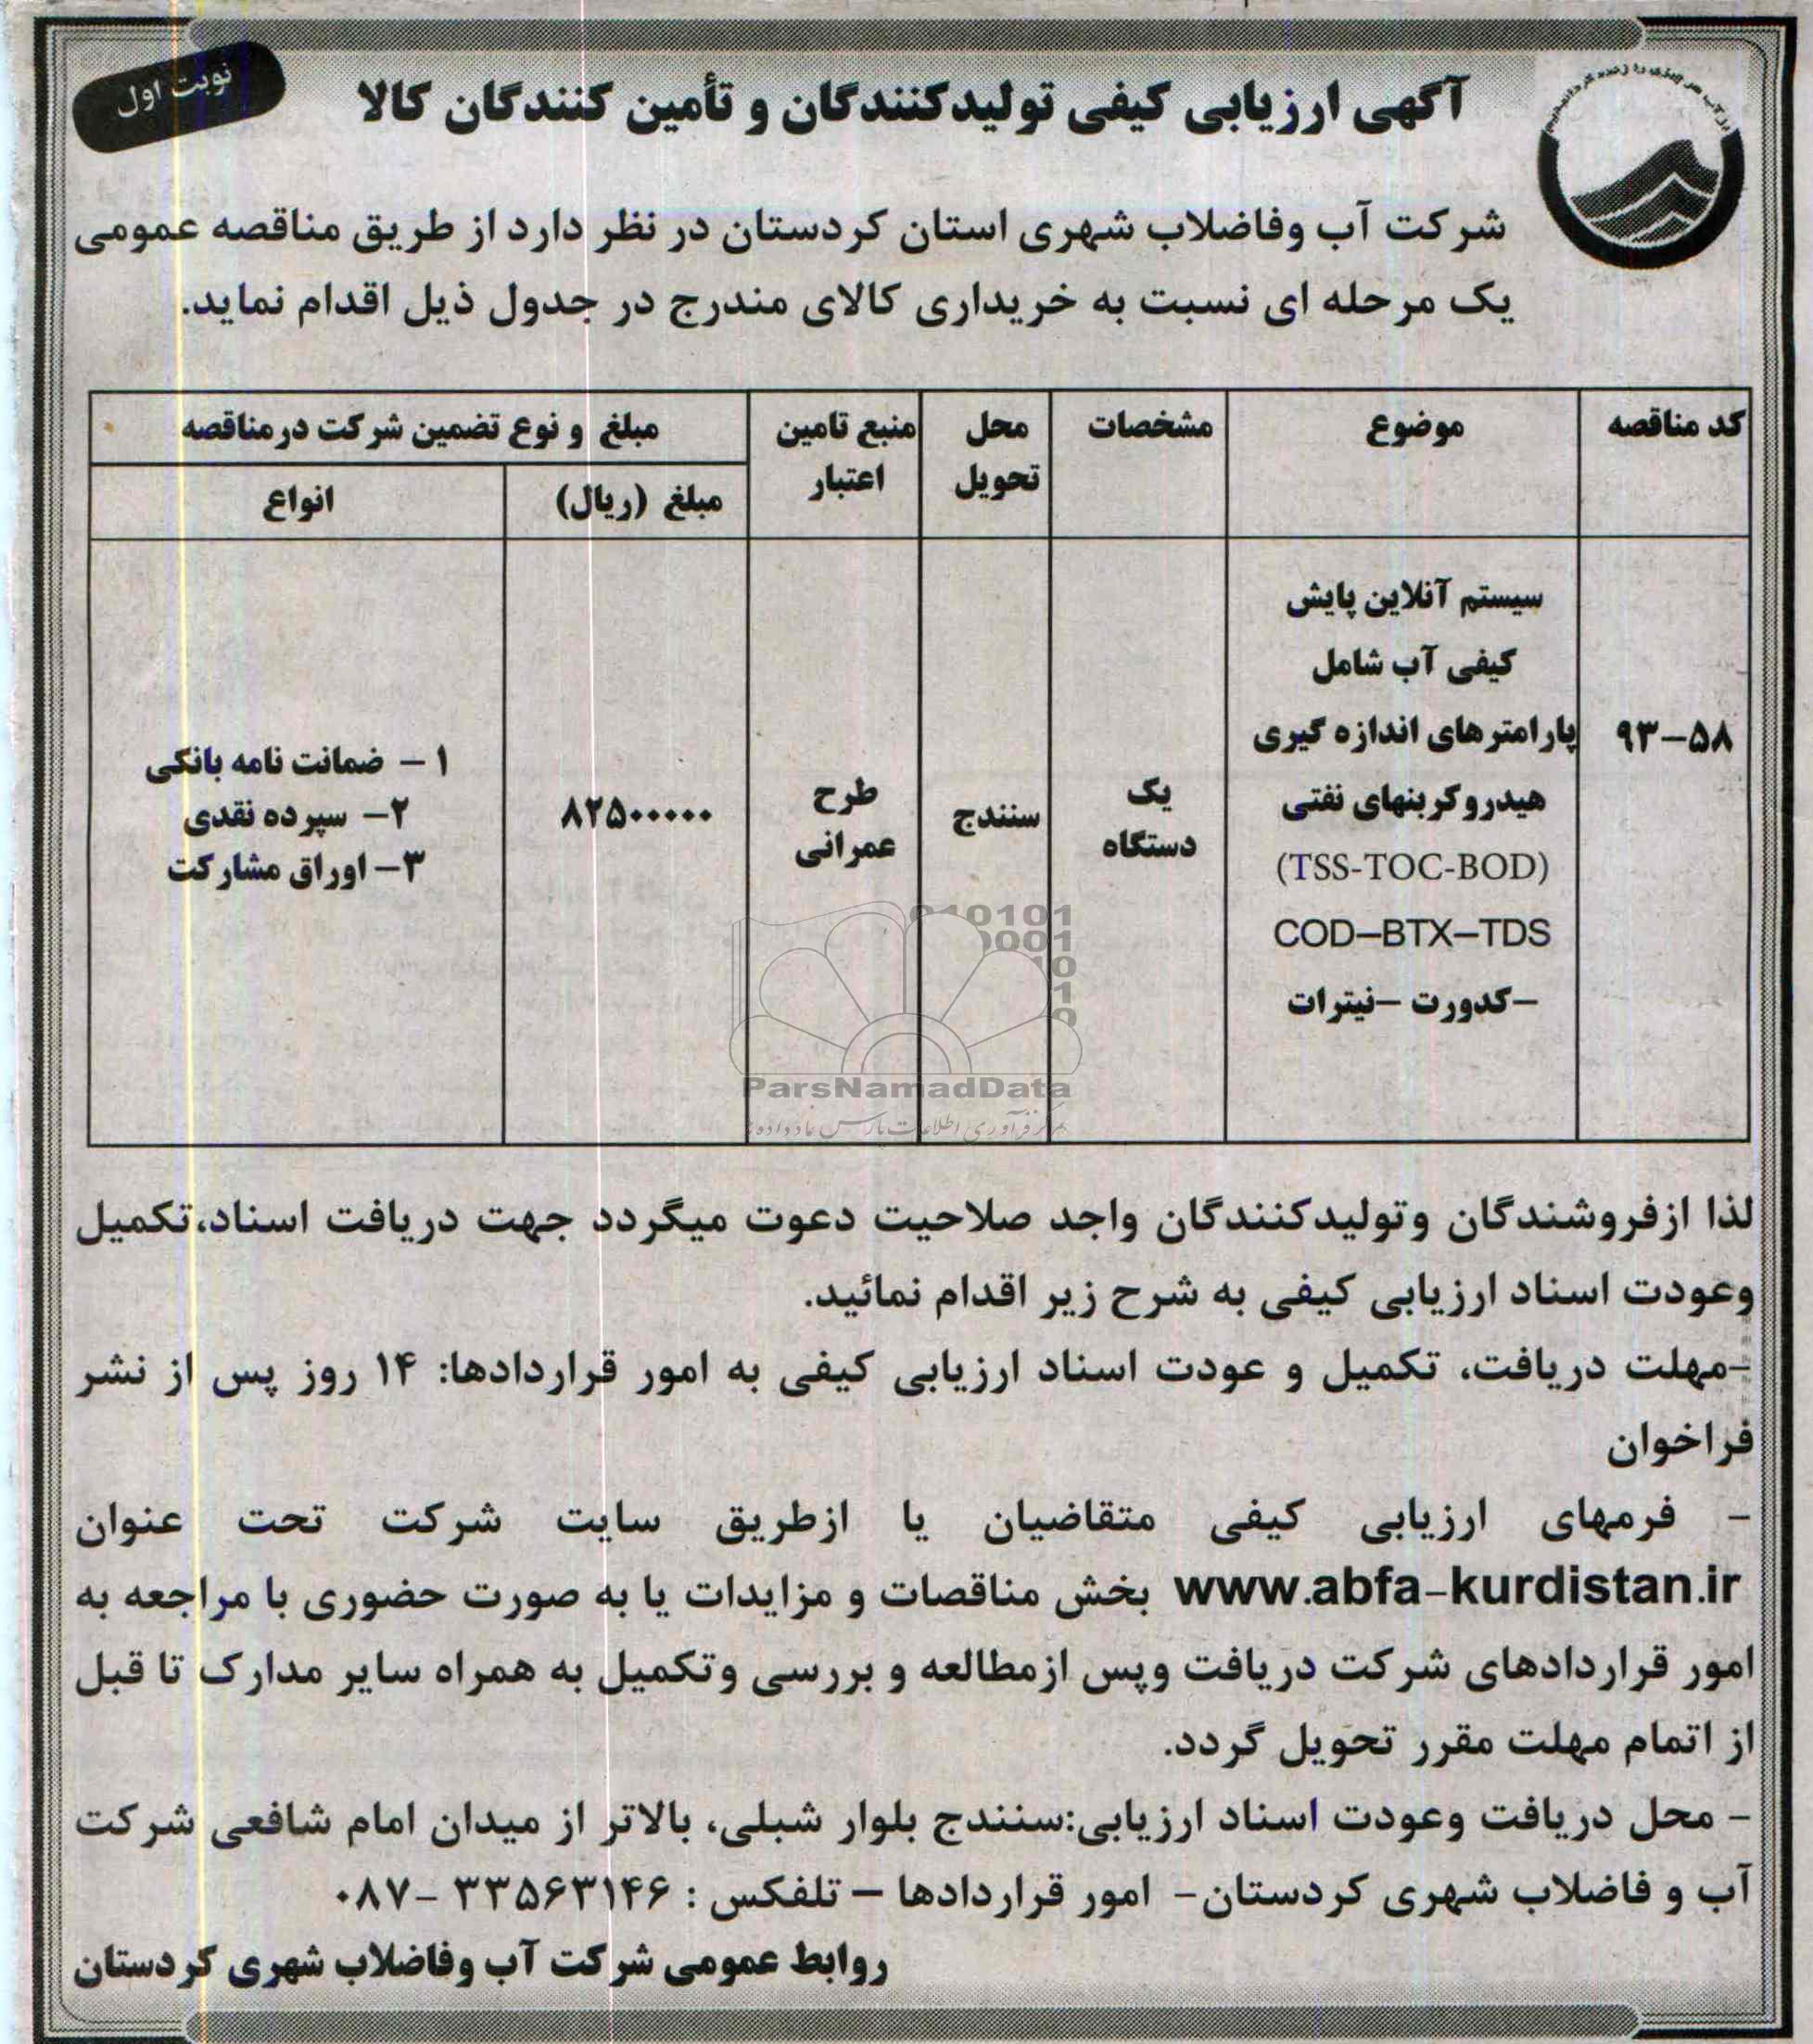 نوبت اول
آگهی ارزیابی کیفی تولیدکنندگان و تأمین کنندگان کالا
شرکت آب وفاضلاب شهری استان کردستان در نظر دارد از طریق مناقصه عمومی
یک مرحله ای نسبت به خریداری کالای مندرج در جدول ذیل اقدام نماید.
کد مناقصه
موضوع
مشخصات
محل
تحویل
منبع تامین
اعتبار
مبلغ و نوع تضمین شرکت درمناقصه
مبلغ (ریال)
انواع
۹۳-۵۸
سیستم آنلاین پایش
کیفی آب شامل
پارامترهای اندازه گیری
هیدروکربنهای نفتی
(TSS-TOC-BOD)
COD-BTX-TDS
-کدورت -نیترات
یک
دستگاه
سنندج
طرح
عمرانی
۸۲۵۰۰۰۰۰
۱- ضمانت نامه بانکی
۲- سپرده نقدی
۳- اوراق مشارکت
ParsNamadData
لذا ازفروشندگان وتولیدکنندگان واجد صلاحیت دعوت میگردد جهت دریافت اسناد،تکمیل
وعودت اسناد ارزیابی کیفی به شرح زیر اقدام نمائید.
-مهلت دریافت، تکمیل و عودت اسناد ارزیابی کیفی به امور قراردادها: ۱۴ روز پس از نشر
فراخوان
- فرمهای ارزیابی کیفی متقاضیان یا ازطریق سایت شرکت تحت عنوان
www.abfa-kurdistan.ir بخش مناقصات و مزایدات یا به صورت حضوری با مراجعه به
امور قراردادهای شرکت دریافت وپس ازمطالعه و بررسی وتکمیل به همراه سایر مدارک تا قبل
از اتمام مهلت مقرر تحویل گردد.
- محل دریافت وعودت اسناد ارزیابی:سنندج بلوار شبلی، بالاتر از میدان امام شافعی شرکت
آب و فاضلاب شهری کردستان- امور قراردادها – تلفکس : ۳۳۵۶۳۱۴۶ -۰۸۷
روابط عمومی شرکت آب وفاضلاب شهری کردستان